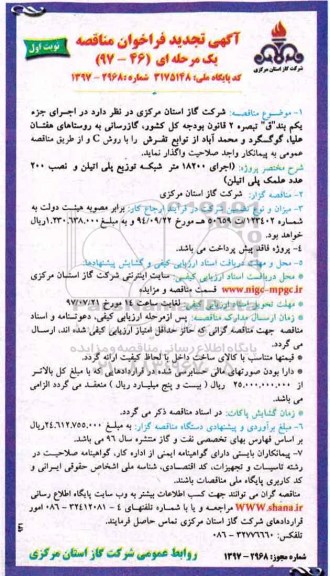 آگهی تجدید فراخوان مناقصه
یک مرحله ای (۴۶ - ۹۷)
نوبت اول
شرکت گاز استان مرکزی
کد پایگاه ملی: ۳۱۷۵۱۴۸ شماره: ۲۹۶۸-۱۳۹۷
۱- موضوع مناقصه: شرکت گاز استان مرکزی در نظر دارد در اجرای جزء
یکم بند"ق" تبصره ۲ قانون بودجه کل کشور، گازرسانی به روستاهای هفتان
علیا، گوگسگرد و محمد آباد از توابع تفرش را با روش C و از طریق مناقصه
عمومی به پیمانکار واجد صلاحیت واگذار نماید.
شرح مختصر پروژه: (اجرای ۱۸۲۰۰ متر شبکه توزیع پلی اتیلن و نصب ۲۰۰
عدد علمک پلی اتیلن)
۲- مناقصه گزار: شرکت گاز استان مرکزی
۳- میزان و نوع تضمین شرکت در فرآیند ارجاع کار: برابر مصوبه هیئت دولت به
شماره ۱۲۳۴۰۲/ت ۵۰۶۵۹ هـ مورخ ۹۴/۰۹/۲۲ و به مبلغ ۱.۲۳۰.۶۳۸.۰۰۰ریال
خواهد بود.
۴- پروژه فاقد پیش پرداخت می باشد.
۵- محل و مهلت دریافت اسناد ارزیابی کیفی و گشایش پیشنهادها:
* محل دریافت اسناد ارزیابی کیفی: سایت اینترنتی شرکت گاز استان مرکزی
www.nigc-mpgc.ir قسمت مناقصه و مزایده
* مهلت تحویل اسناد ارزیابی کیفی: لغایت ساعت ۱۴ مورخ ۹۷/۰۷/۲۱
* زمان ارسال مدارک مناقصه: پس ازمرحله ارزیابی کیفی، دعوتنامه و اسناد
مناقصه جهت مناقصه گرانی که حائز حداقل امتیاز ارزیابی کیفی شده اند، ارسال
می گردد.
* قیمتها متناسب با کالای ساخت داخل با لحاظ کیفیت ارائه گردد.
* دارا بودن صورتهای مالی حسابرسی شده در قراردادهایی که با مبلغ کل بالاتر از
۲۵.۰۰۰.۰۰۰.۰۰۰ ریال ( بیست و پنج میلیارد ریال ) منعقد می گردد الزامی
می باشد.
* زمان گشایش پاکات: در اسناد مناقصه ذکر می گردد.
۶- مبلغ برآوردی و پیشنهادی دستگاه مناقصه گزار: به مبلغ ۲۴.۶۱۲.۷۵۵.۰۰۰ریال
بر اساس فهارس بهای تخصصی نفت و گاز منتشره سال ۹۶ می باشد.
۷- پیمانکاران بایستی دارای گواهینامه ایمنی از اداره کار، گواهینامه صلاحیت در
رشته تاسیسات و تجهیزات، کد اقتصادی، شناسه ملی اشخاص حقوقی ایرانی و
کد کاربری پایگاه ملی مناقصات باشند.
مناقصه گران می توانند جهت کسب اطلاعات بیشتر به وب سایت پایگاه اطلاع رسانی
www.shana.ir مراجعه و یا با شماره تلفنهای ۴ - ۳۲۴۱۲۰۸۱ - ۰۸۶ امور
قراردادهای شرکت گاز استان مرکزی تماس حاصل فرمایند.
تلفکس: ۳۲۷۷۶۶۶۰ - ۰۸۶
شماره مجوز: ۲۹۶۸ - ۱۳۹۷
روابط عمومی شرکت گاز استان مرکزی